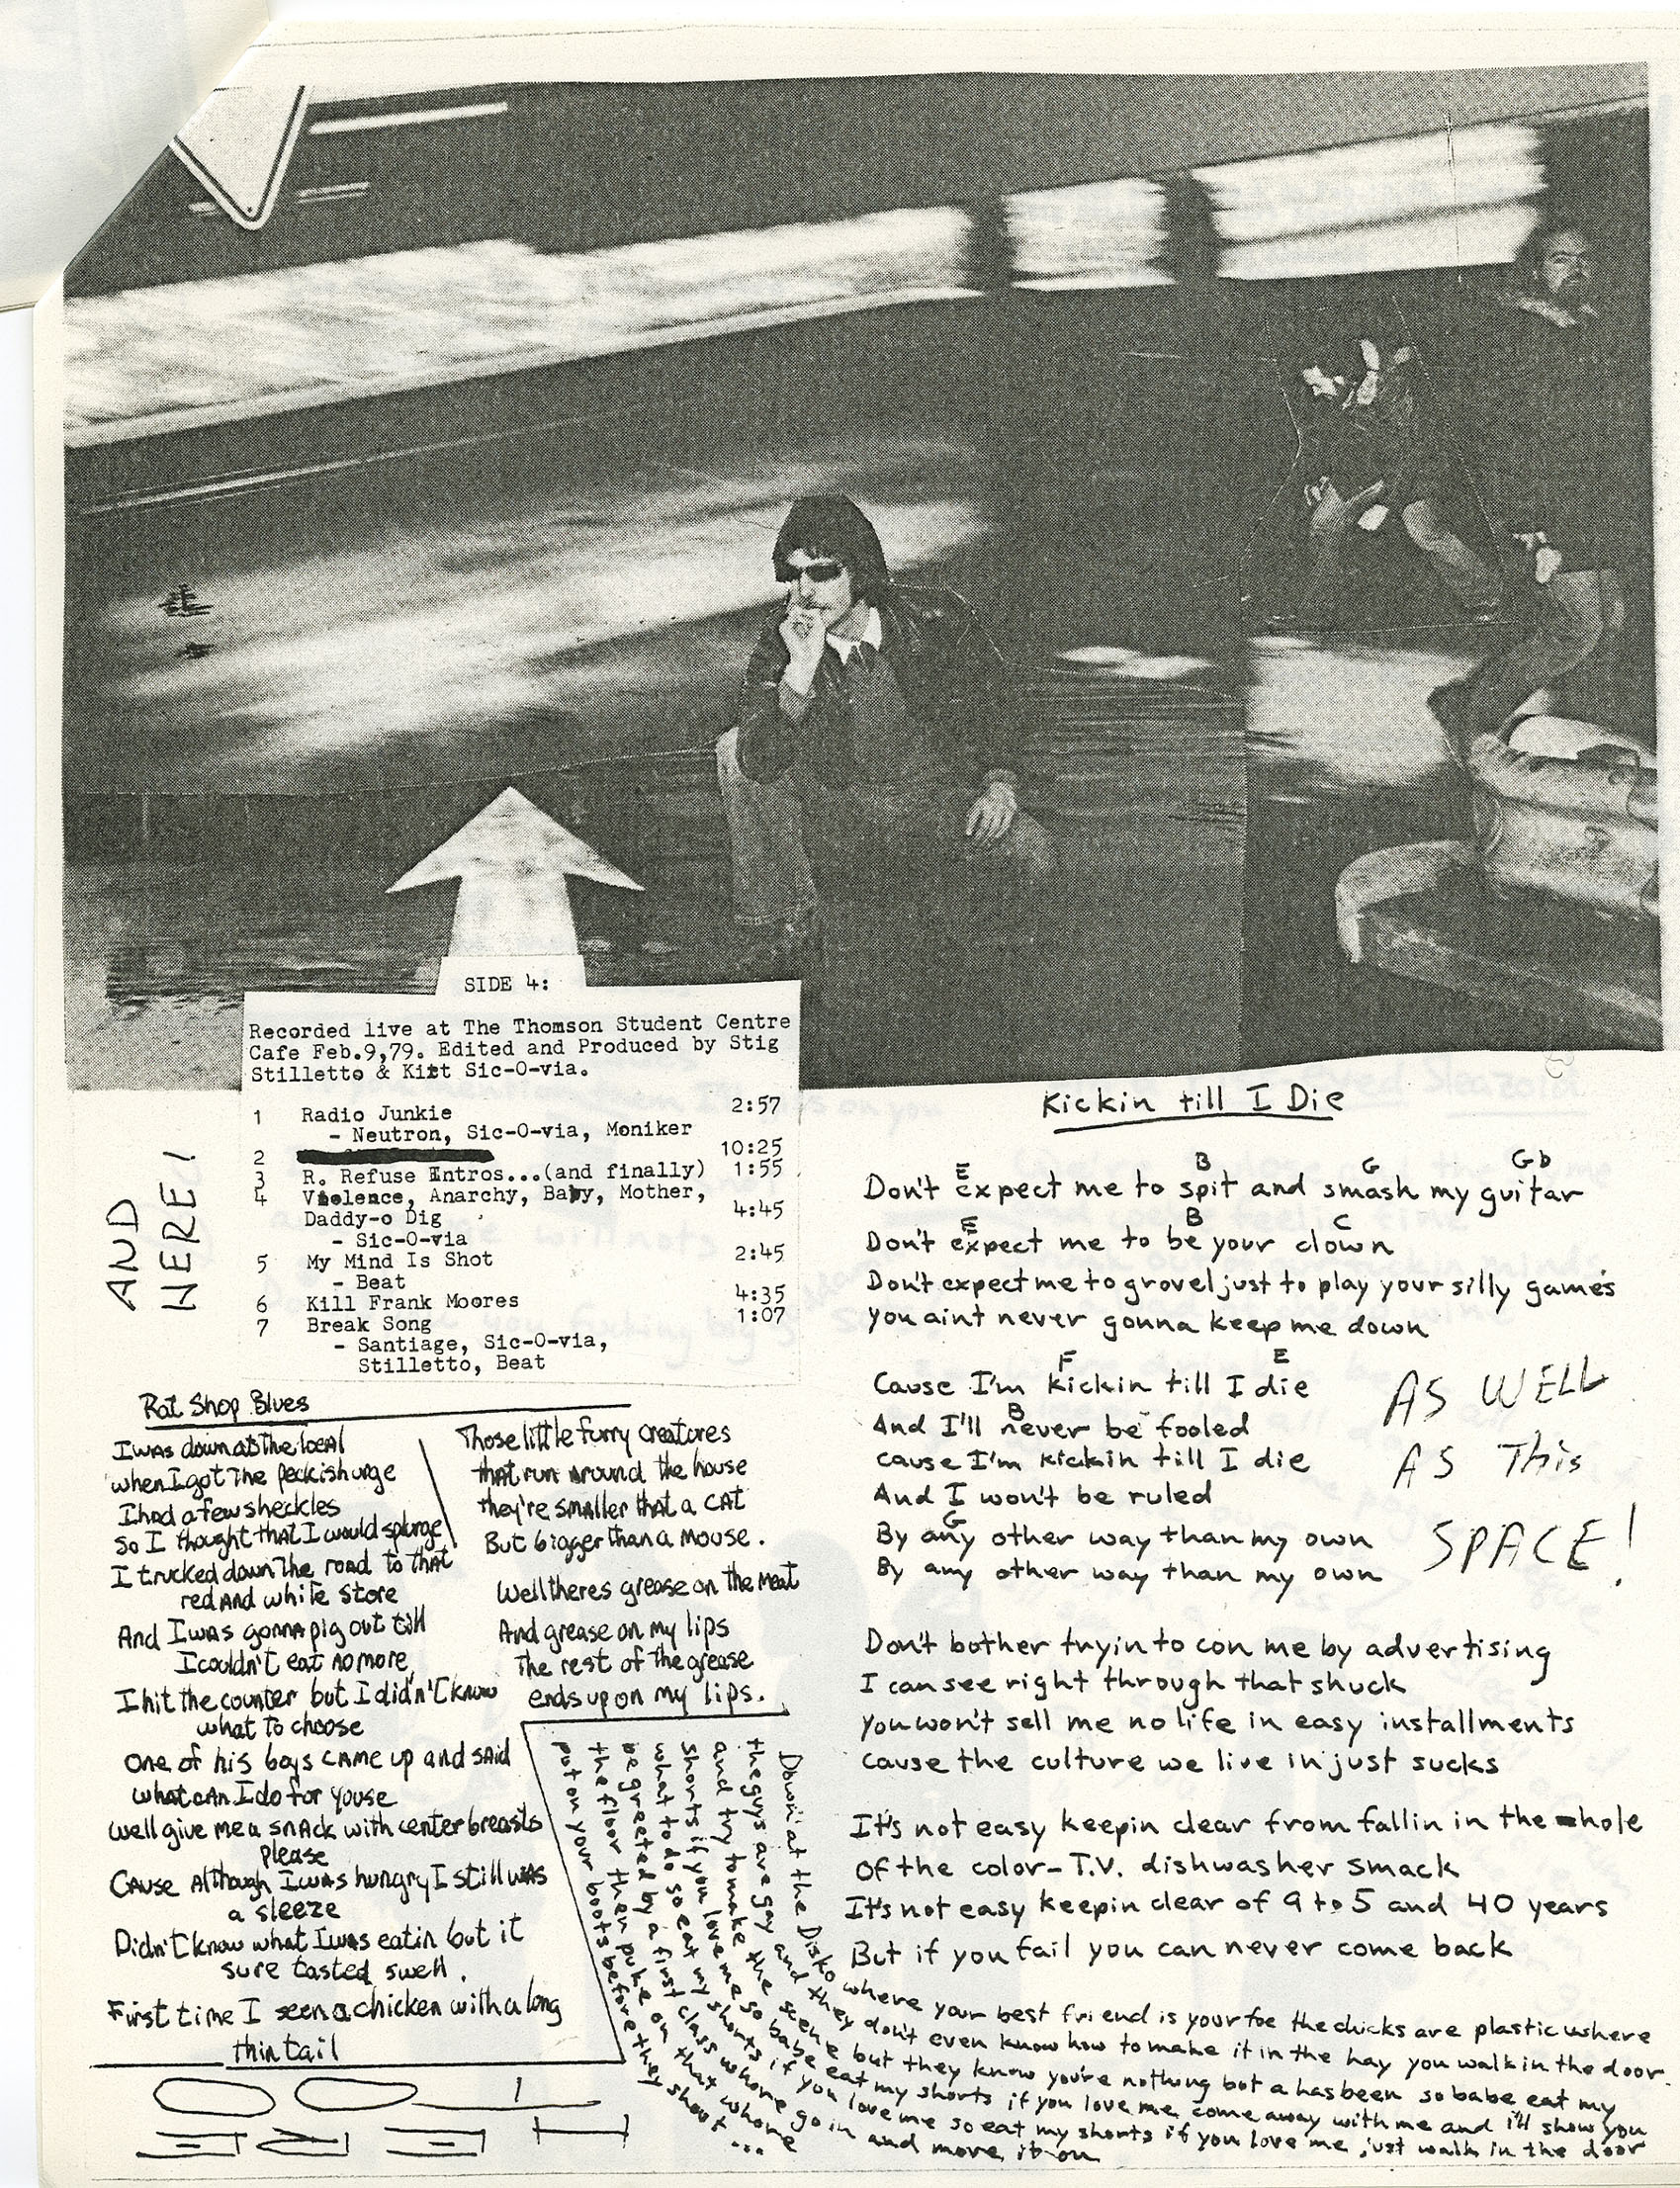 SIDE 4:
Recorded live at The Thomson Student Centre
Cafe Feb.9,79. Edited and Produced by Stig
Stilletto & Kitt Sic-O-via.
1 Radio Junkie 2:57
- Neutron, Sic-O-via, Moniker
2 10:25
3 R. Refuse Intros...(and finally) 1:55
4 Violence, Anarchy, Baby, Mother,
Daddy-o Dig 4:45
- Sic-O-via
5 My Mind Is Shot 2:45
- Beat
6 Kill Frank Moores 4:35
7 Break Song 1:07
- Santiage, Sic-O-via,
Stilletto, Beat
AND
HERE!
Rat Shop Blues
I was down at the local
when I got the peckish urge
I had a few sheckles
So I thought that I would splurge
I trucked down the road to that
red and white store
And I was gonna pig out till
I couldn't eat no more
I hit the counter but I didn't know
what to choose
One of his boys came up and said
what can I do for youse
Well give me a snack with center breasts
please
Cause although I was hungry I still was
a sleeze
Didn't know what I was eatin but it
sure tasted swell.
First time I seen a chicken with a long
thin tail
Those little furry creatures
that run around the house
they're smaller that a cat
But bigger than a mouse.
Well theres grease on the meat
And grease on my lips
The rest of the grease
ends up on my lips.
Kickin till I Die
E B G Gb
Don't expect me to spit and smash my guitar
E B C
Don't expect me to be your clown
Don't expect me to grovel just to play your silly games
you aint never gonna keep me down
F E
Cause I'm kickin till I die
B
And I'll never be fooled
cause I'm kickin till I die
And I won't be ruled
G
By any other way than my own
By any other way than my own
AS WELL
AS THIS
SPACE!
Don't bother tryin to con me by advertising
I can see right through that shuck
you won't sell me no life in easy installments
cause the culture we live in just sucks
It's not easy keepin clear from fallin in the hole
of the color-T.V. dishwasher smack
It's not easy keepin clear of 9 to 5 and 40 years
But if you fail you can never come back
Down at the Disko where your best friend is your foe the chicks are plastic where
the guys are gay and they don't even know how to make it in the hay you walk in the door
and try to make the scene but they know you're nothing but a has been so babe eat my
shorts if you love me so babe eat my shorts if you love me come away with me and i'll show you
what to do so eat my shorts if you love me so eat my shorts if you love me just walk in the door
be greeted by a first class whore go in and move it on
the floor then puke on that whore
put on your boots before they shout...